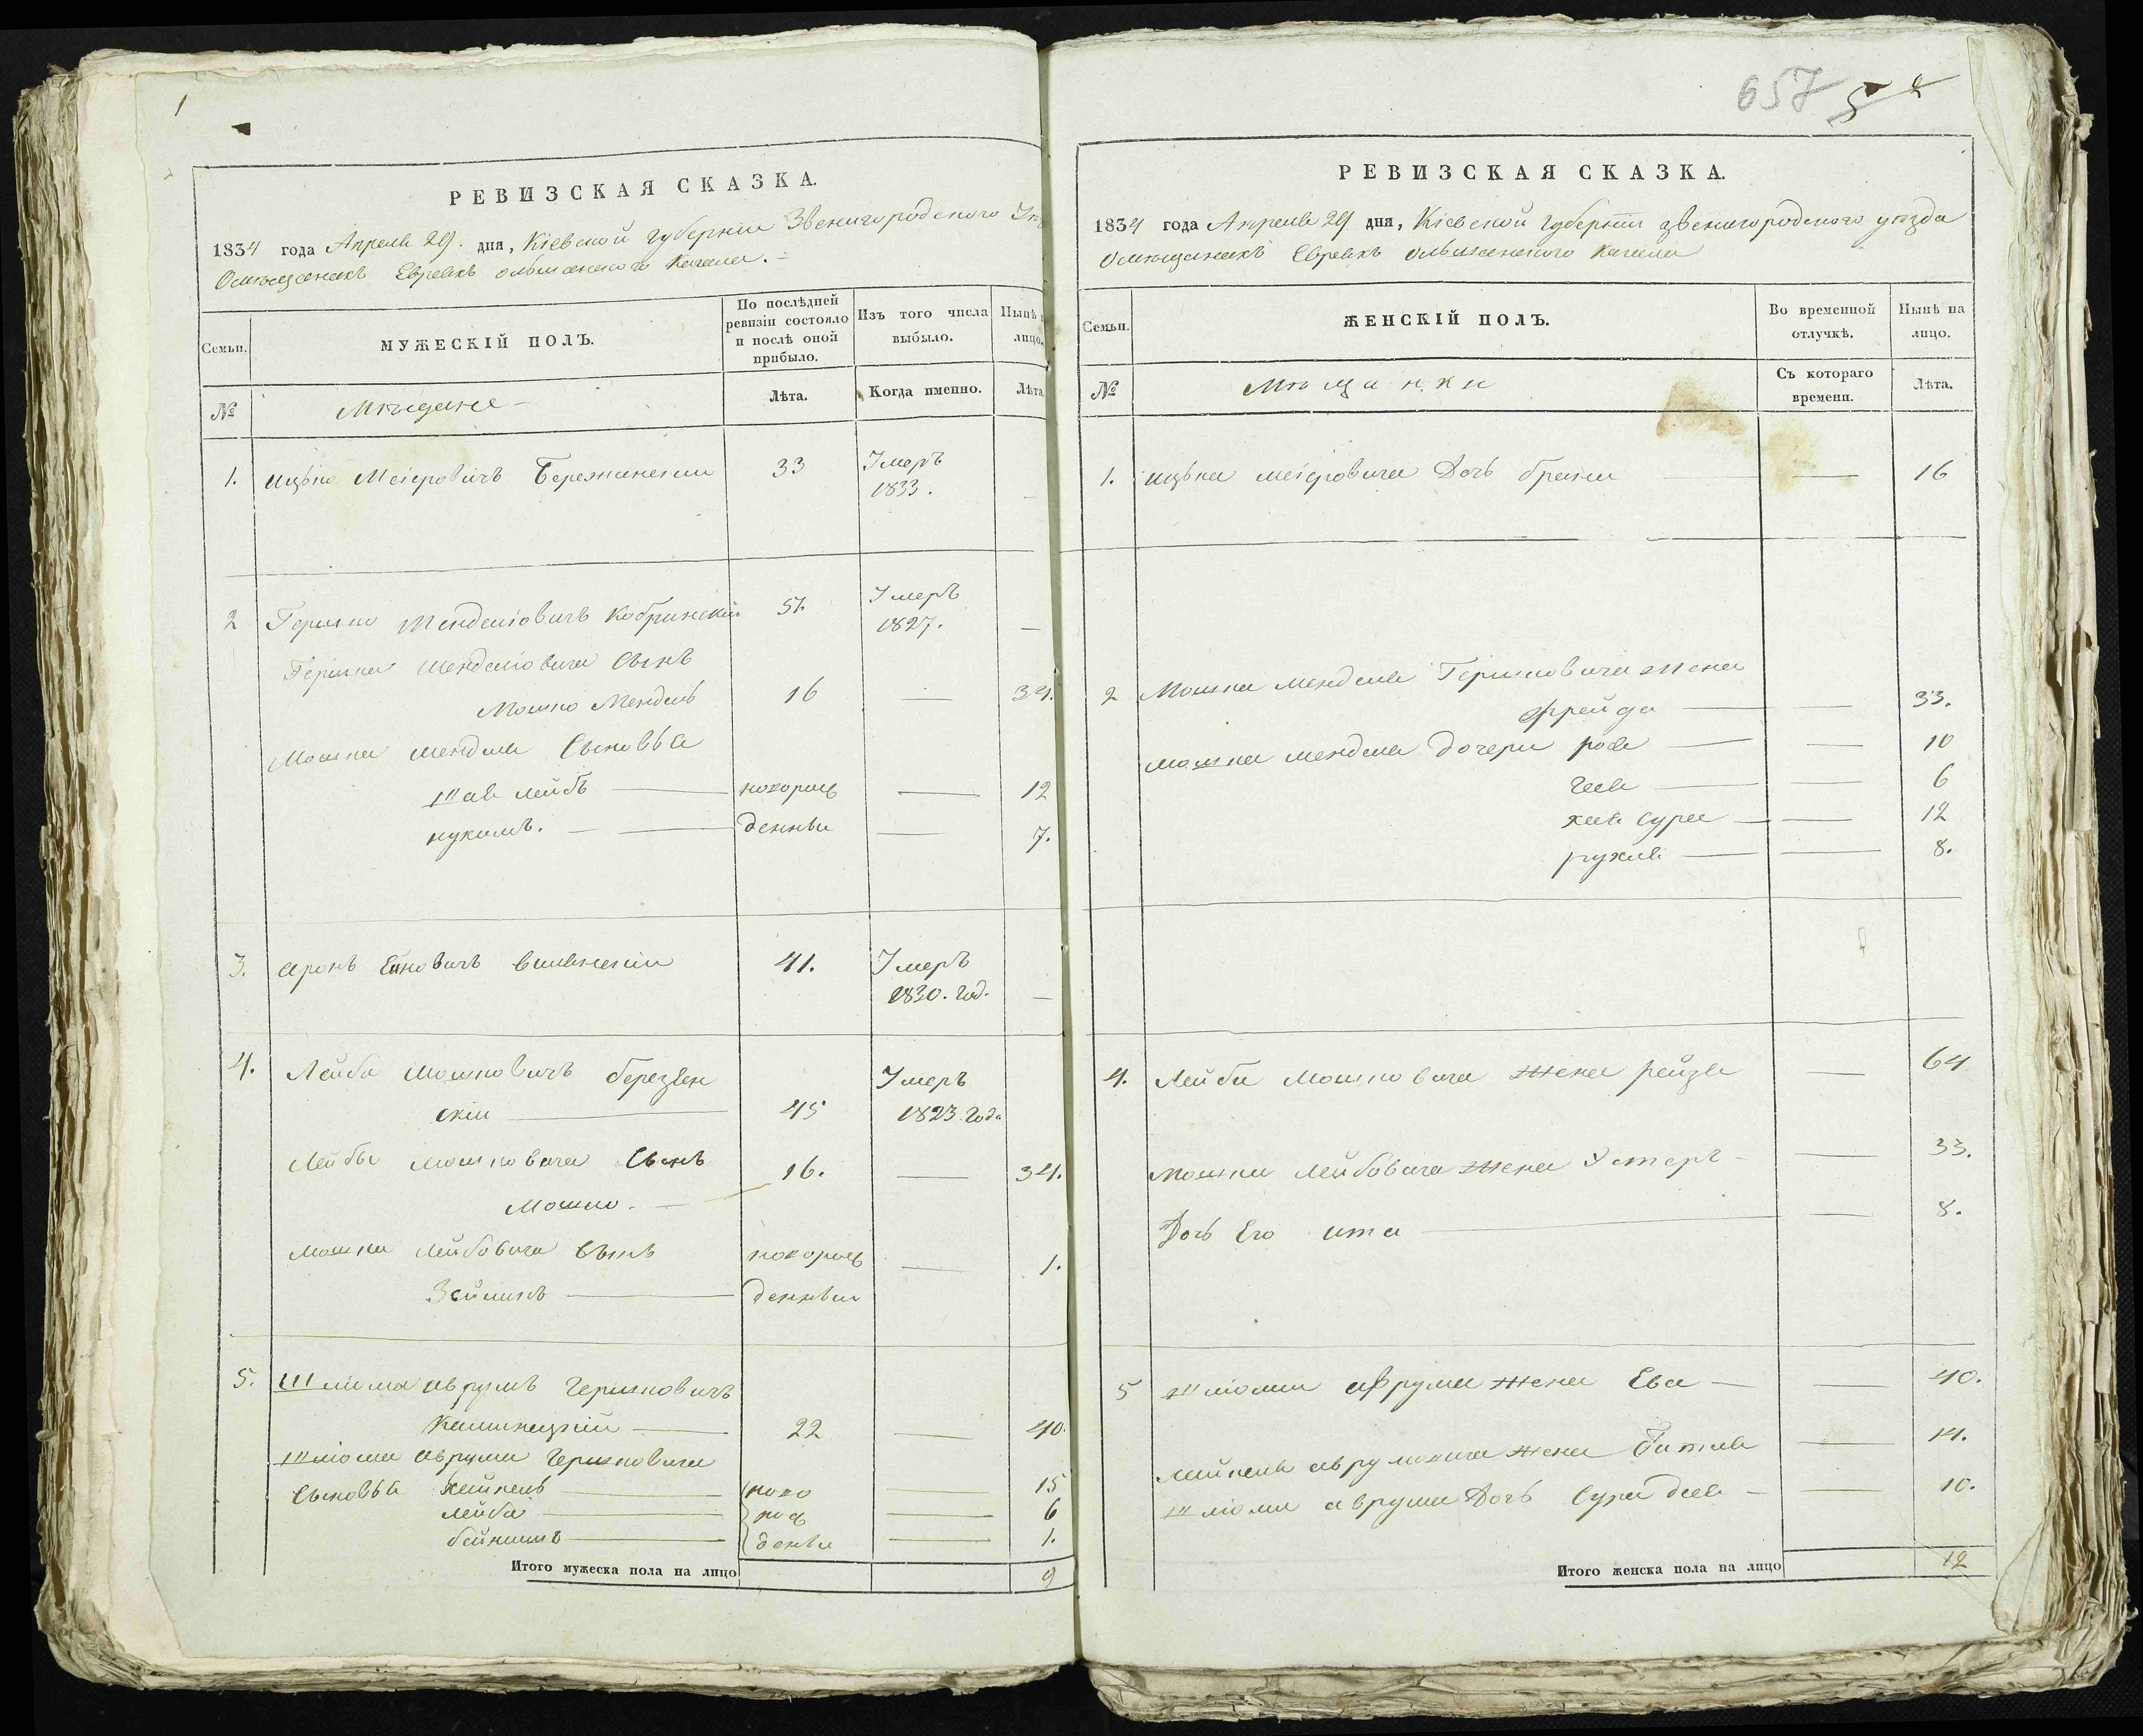 1
РЕВИЗСКАЯ СКАЗКА.
1834 года Апреля 29. дня, Кіевской губерніи Звенигородского
Омѣщанахъ Евреяхъ ольшанского Кагала.
Семьи.
МУЖЕСКІЙ ПОЛЪ.
По послѣдней ревизіи состояло и послѣ оной прибыло.
Изъ того числа выбыло.
Нынѣ
лицо.
№
Мѣщане
Лѣта.
Когда именно.
Лѣта
1. ицько Меіеровичъ Бережанскіи 33 Умеръ
1833.
2 Гершко Менделіовичъ Кобринскіи 51. Умеръ
1827. —
Гершка Менделіовича Сынъ
Мошко Мендель 16 — 34.
Мошка менделя Сыновья
Шае лейбъ — новорож — 12
нухимъ. — денныи — 7.
3. аронъ Еіновичъ виленскіи 41. Умеръ
1830. год. —
4. Лейба Мошковичъ березен
скіи — 45 Умеръ
1823. Года
Лейбы мошковича Сынъ
Мошко. — 16. — 34.
мошка лейбовича Сынъ новорож — 1.
Зейликъ — денныи
5. Шліома аврумъ Гершковичъ
Каминецкіи — 22 — 40.
Шліомы аврума Гершковича
Сыновья Хейкель — ново — 15
лейба — рож — 6
бейнишъ — денны — 1.
Итого мужеска пола на лицо 9
657
РЕВИЗСКАЯ СКАЗКА.
1834 года Апреля 29 дня, Кіевской губерніи звенигородского уезда
Омѣщанахъ Евреяхъ ольшанского кагала
Семьи.
ЖЕНСКІЙ ПОЛЪ.
Во временной отлучкѣ.
Нынѣ на лицо.
№
Мѣщанки
Съ котораго времени.
Лѣта.
1. ицька меіеровича Дочь брана — 16
2 Мошка менделя Гершковича жена
фрейда — 33.
мошка менделя дочери рося — 10
— 6
хая сура — 12
рухля — 8.
4. Лейбы Мошковича жена рейзя — 64
Мошка лейбовича жена Эстеръ — 33.
Дочь Его ита — 8.
5 Шліомы аврума жена Ева — 40.
жена
Шліомы аврума Дочь Сура — 10.
Итого женска пола на лицо 12